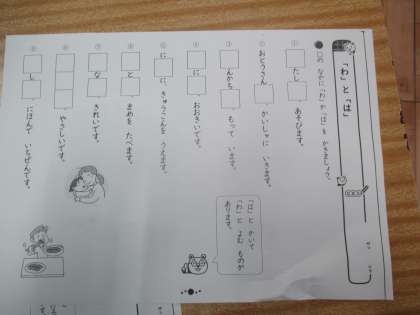 「わ」と「は」
□の なかに「わ」か「は」を かきましょう。
① □たし□ あそびます。
② おとうさん□ かいしゃに いきます。
③ □んかち□ もって います。
④ □に□ おおきいです。
⑤ に□に きゅうこんを うえます。
⑥ □と□ まめを たべます。
⑦ □な□ きれいです。
⑧ □□□ やさしいです。
⑨ □し□ にほんで いちぜんです。
「は」と かいて
「わ」と よむ ものが
あります。